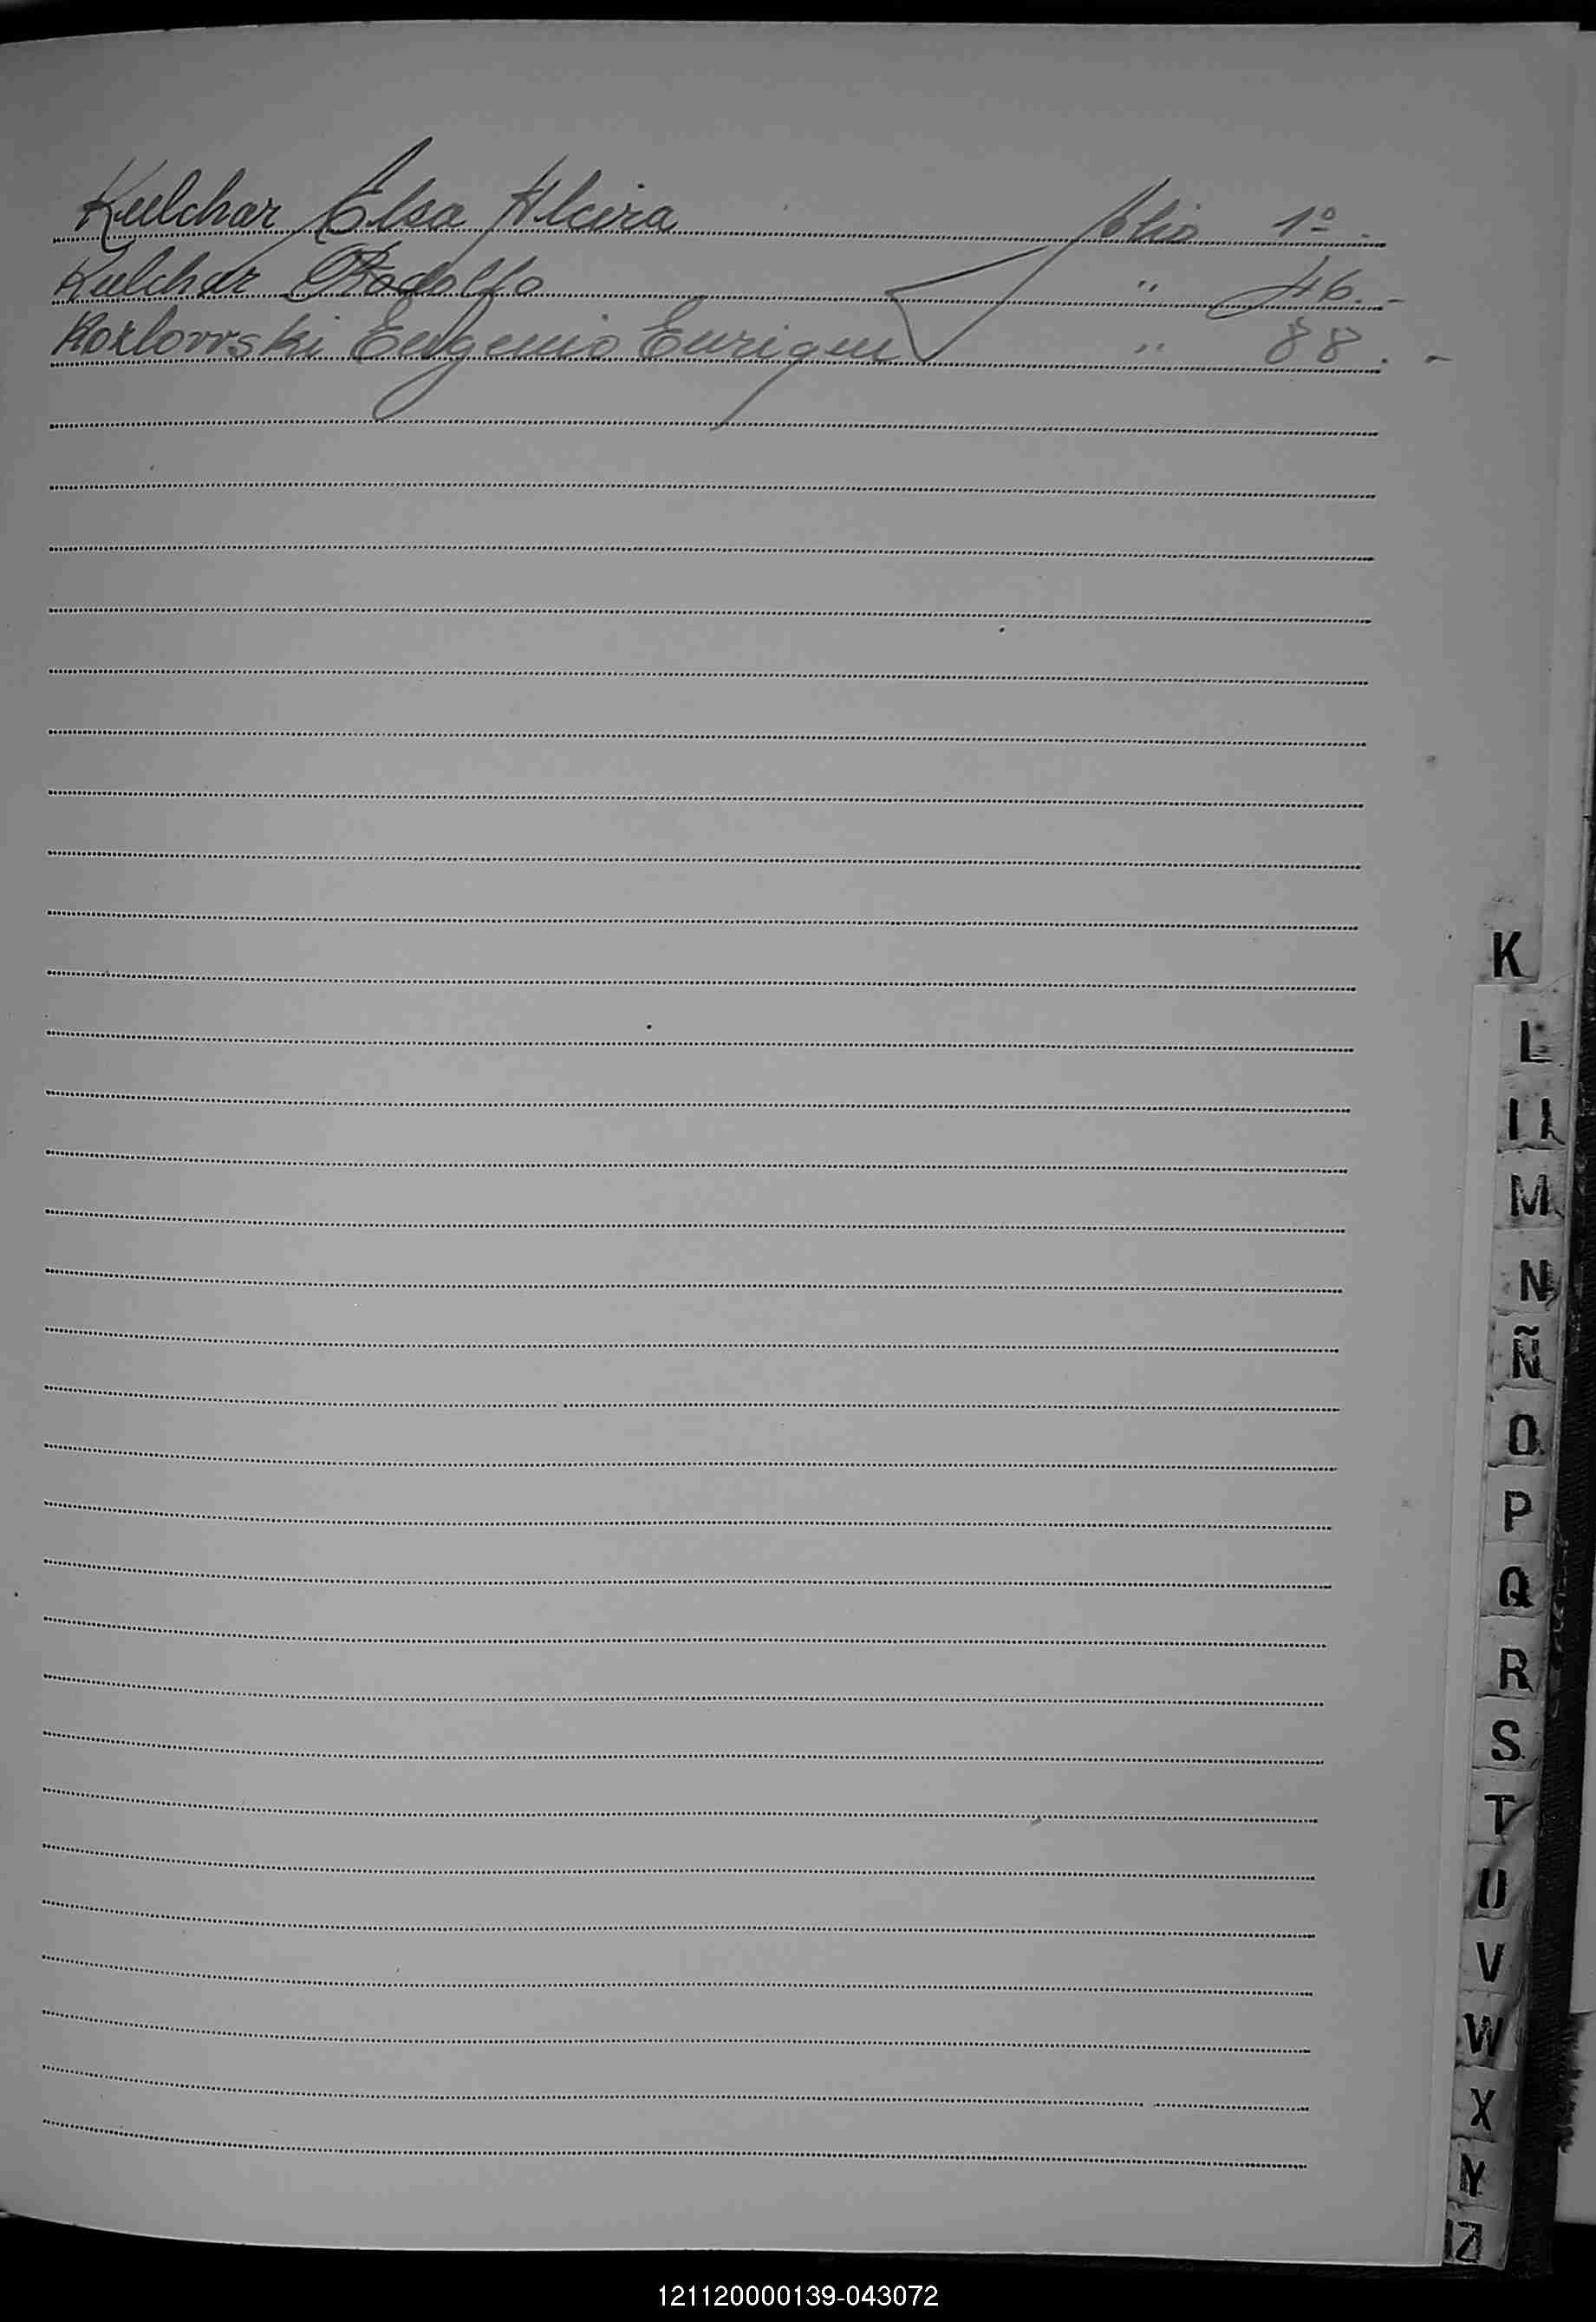 Kulchar Elsa Alcira folio 1º.
Kulchar Rodolfo " 46.-
Kozlovvski Eugenio Enrique " 88.-
K
L
Ll
M
N
Ñ
O
P
Q
R
S
T
U
V
W
X
Y
Z
121120000139-043072